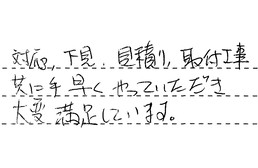 対応、下見、見積り、取付工事
共に手早くやっていただき
大変満足しています。